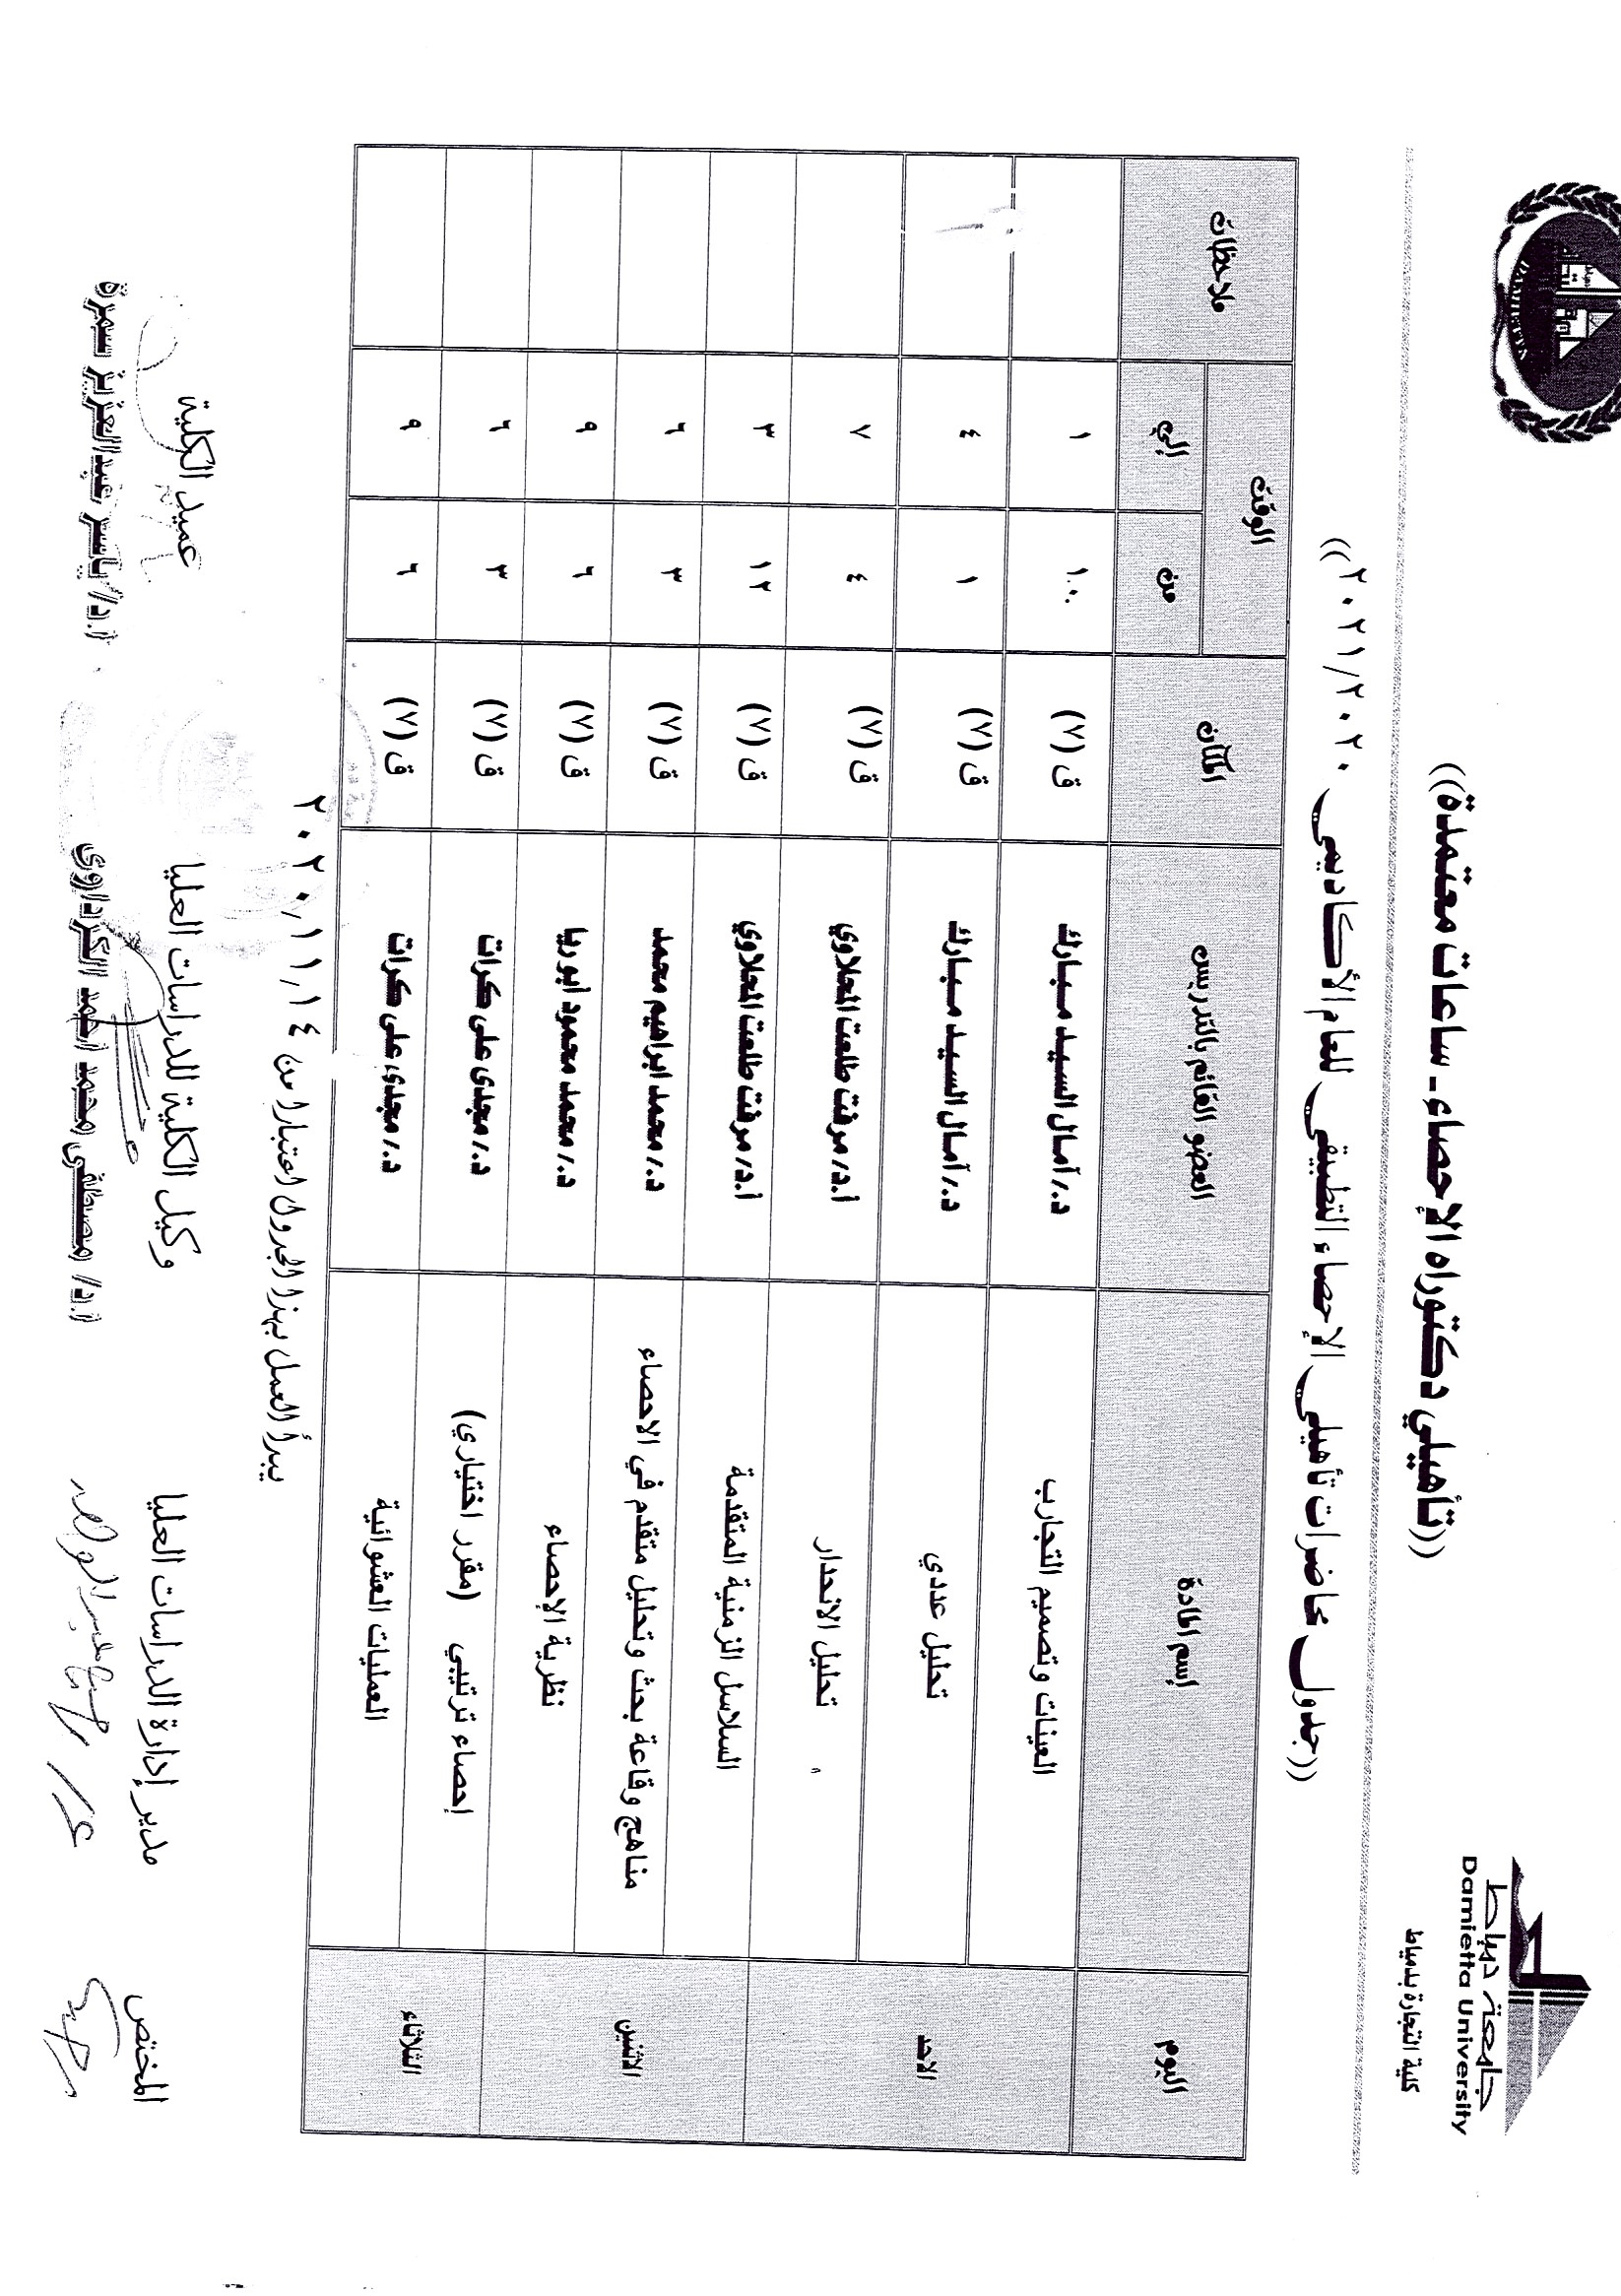 جامعة دمياط
Damietta University
كلية التجارة بدمياط
((تأهيلي دكتوراه الإحصاء - ساعات معتمدة))
((جدول محاضرات تأهيلي الإحصاء التطبيقي للعام الأكاديمي ٢٠٢١/٢٠٢٠))
اليوم إسم المادة العضو القائم بالتدريس المكان الوقت ملاحظات
من إلي
الاحد العينات وتصميم التجارب د./ آمال السيد مبارك ق (٧) ١٠.٠ ١
تحليل عددي د./ آمال السيد مبارك ق (٧) ١ ٤
تحليل الانحدار أ.د/ مرفت طلعت المحلاوي ق (٧) ٤ ٧
الاثنين السلاسل الزمنية المتقدمة أ.د/ مرفت طلعت المحلاوي ق (٧) ١٢ ٣
مناهج وقاعة بحث وتحليل متقدم في الاحصاء د./ محمد ابراهيم محمد ق (٧) ٣ ٦
نظرية الإحصاء د./ محمد محمود أبو ريا ق (٧) ٦ ٩
الثلاثاء إحصاء ترتيبي (مقرر اختياري) د./ مجدى على كرات ق (٧) ٣ ٦
العمليات العشوائية د./ مجدى على كرات ق (٧) ٦ ٩
يبدأ العمل بهذا الجدول اعتبارا من ٢٠٢٠/١١/١٤
المختص مدير إدارة الدراسات العليا وكيل الكلية للدراسات العليا عميد الكلية
ا.د/ مصطفى محمد احمد الكرداوى ا.د/ ياسر عبدالعزيز سمرة